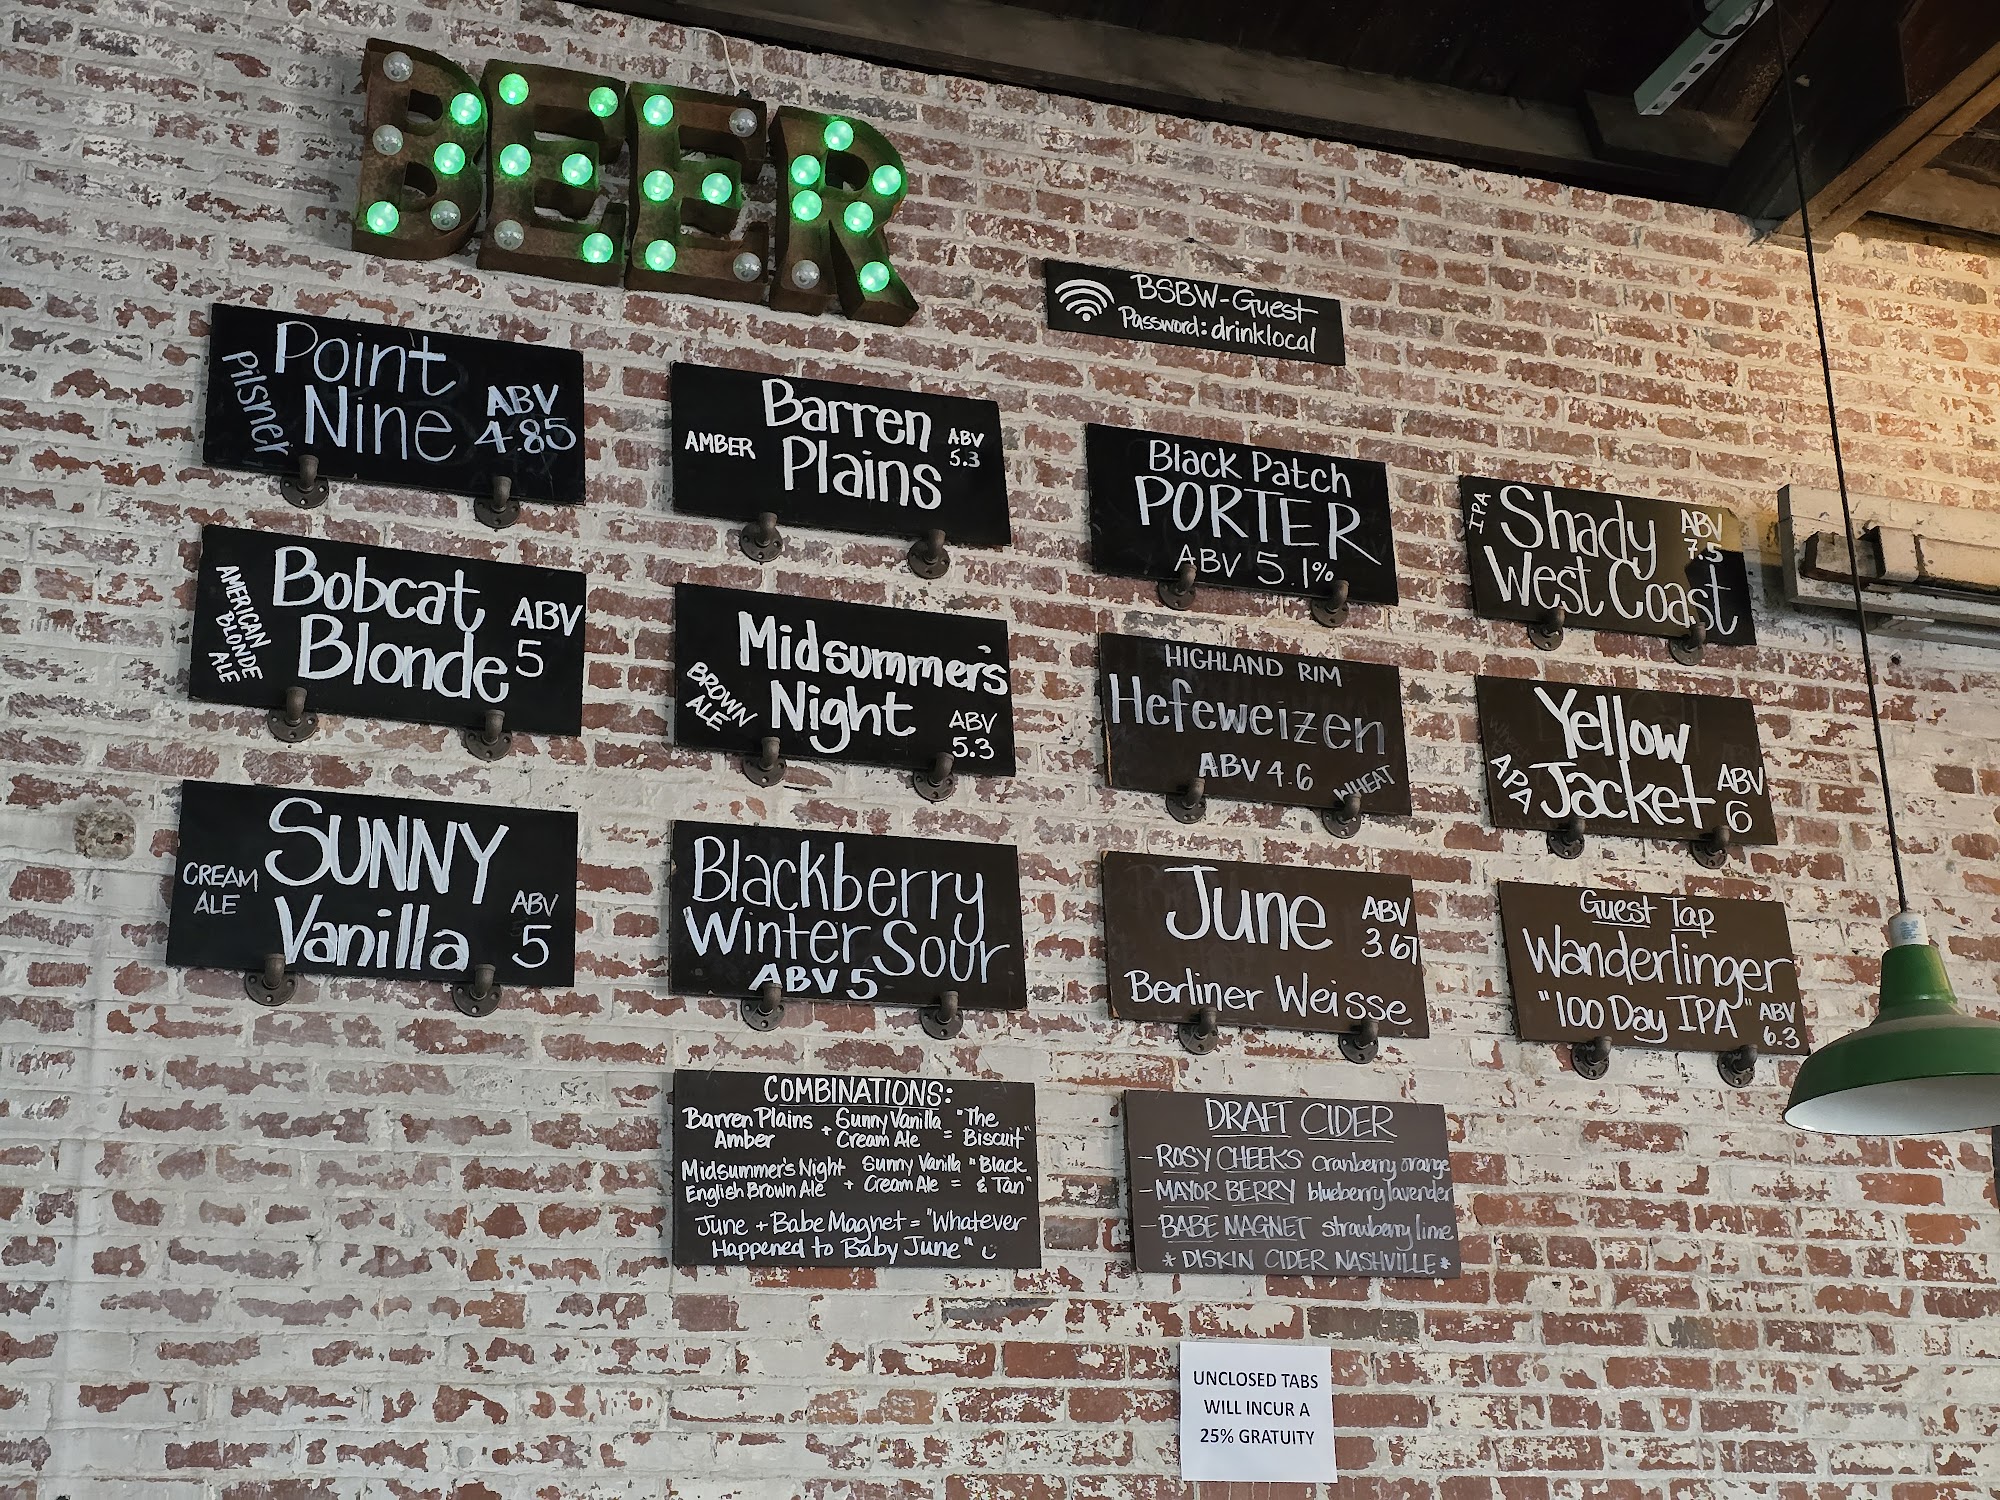 BEER
BSBW-Guest
Password: drinklocal
Point
Nine
Pilsner
ABV
4.85
Barren
Plains
AMBER
ABV
5.3
Black Patch
PORTER
ABV 5.1%
IPA
Shady
West Coast
ABV
7.5
AMERICAN
BLONDE
ALE
Bobcat
Blonde
ABV
5
Midsummer's
Night
BROWN
ALE
ABV
5.3
HIGHLAND RIM
Hefeweizen
ABV 4.6
WHEAT
Yellow
Jacket
APA
ABV
6
CREAM
ALE
SUNNY
Vanilla
ABV
5
Blackberry
Winter Sour
ABV 5
June
ABV
3.67
Berliner Weisse
Guest Tap
Wanderlinger
"100 Day IPA"
ABV
6.3
COMBINATIONS:
Barren Plains Sunny Vanilla "The
Amber + Cream Ale = Biscuit"
Midsummer's Night Sunny Vanilla "Black
English Brown Ale + Cream Ale = & Tan"
June + Babe Magnet = "Whatever
Happened to Baby June"
DRAFT CIDER
- ROSY CHEEKS cranberry orange
- MAYOR BERRY blueberry lavender
- BABE MAGNET strawberry lime
* DISKIN CIDER NASHVILLE *
UNCLOSED TABS
WILL INCUR A
25% GRATUITY